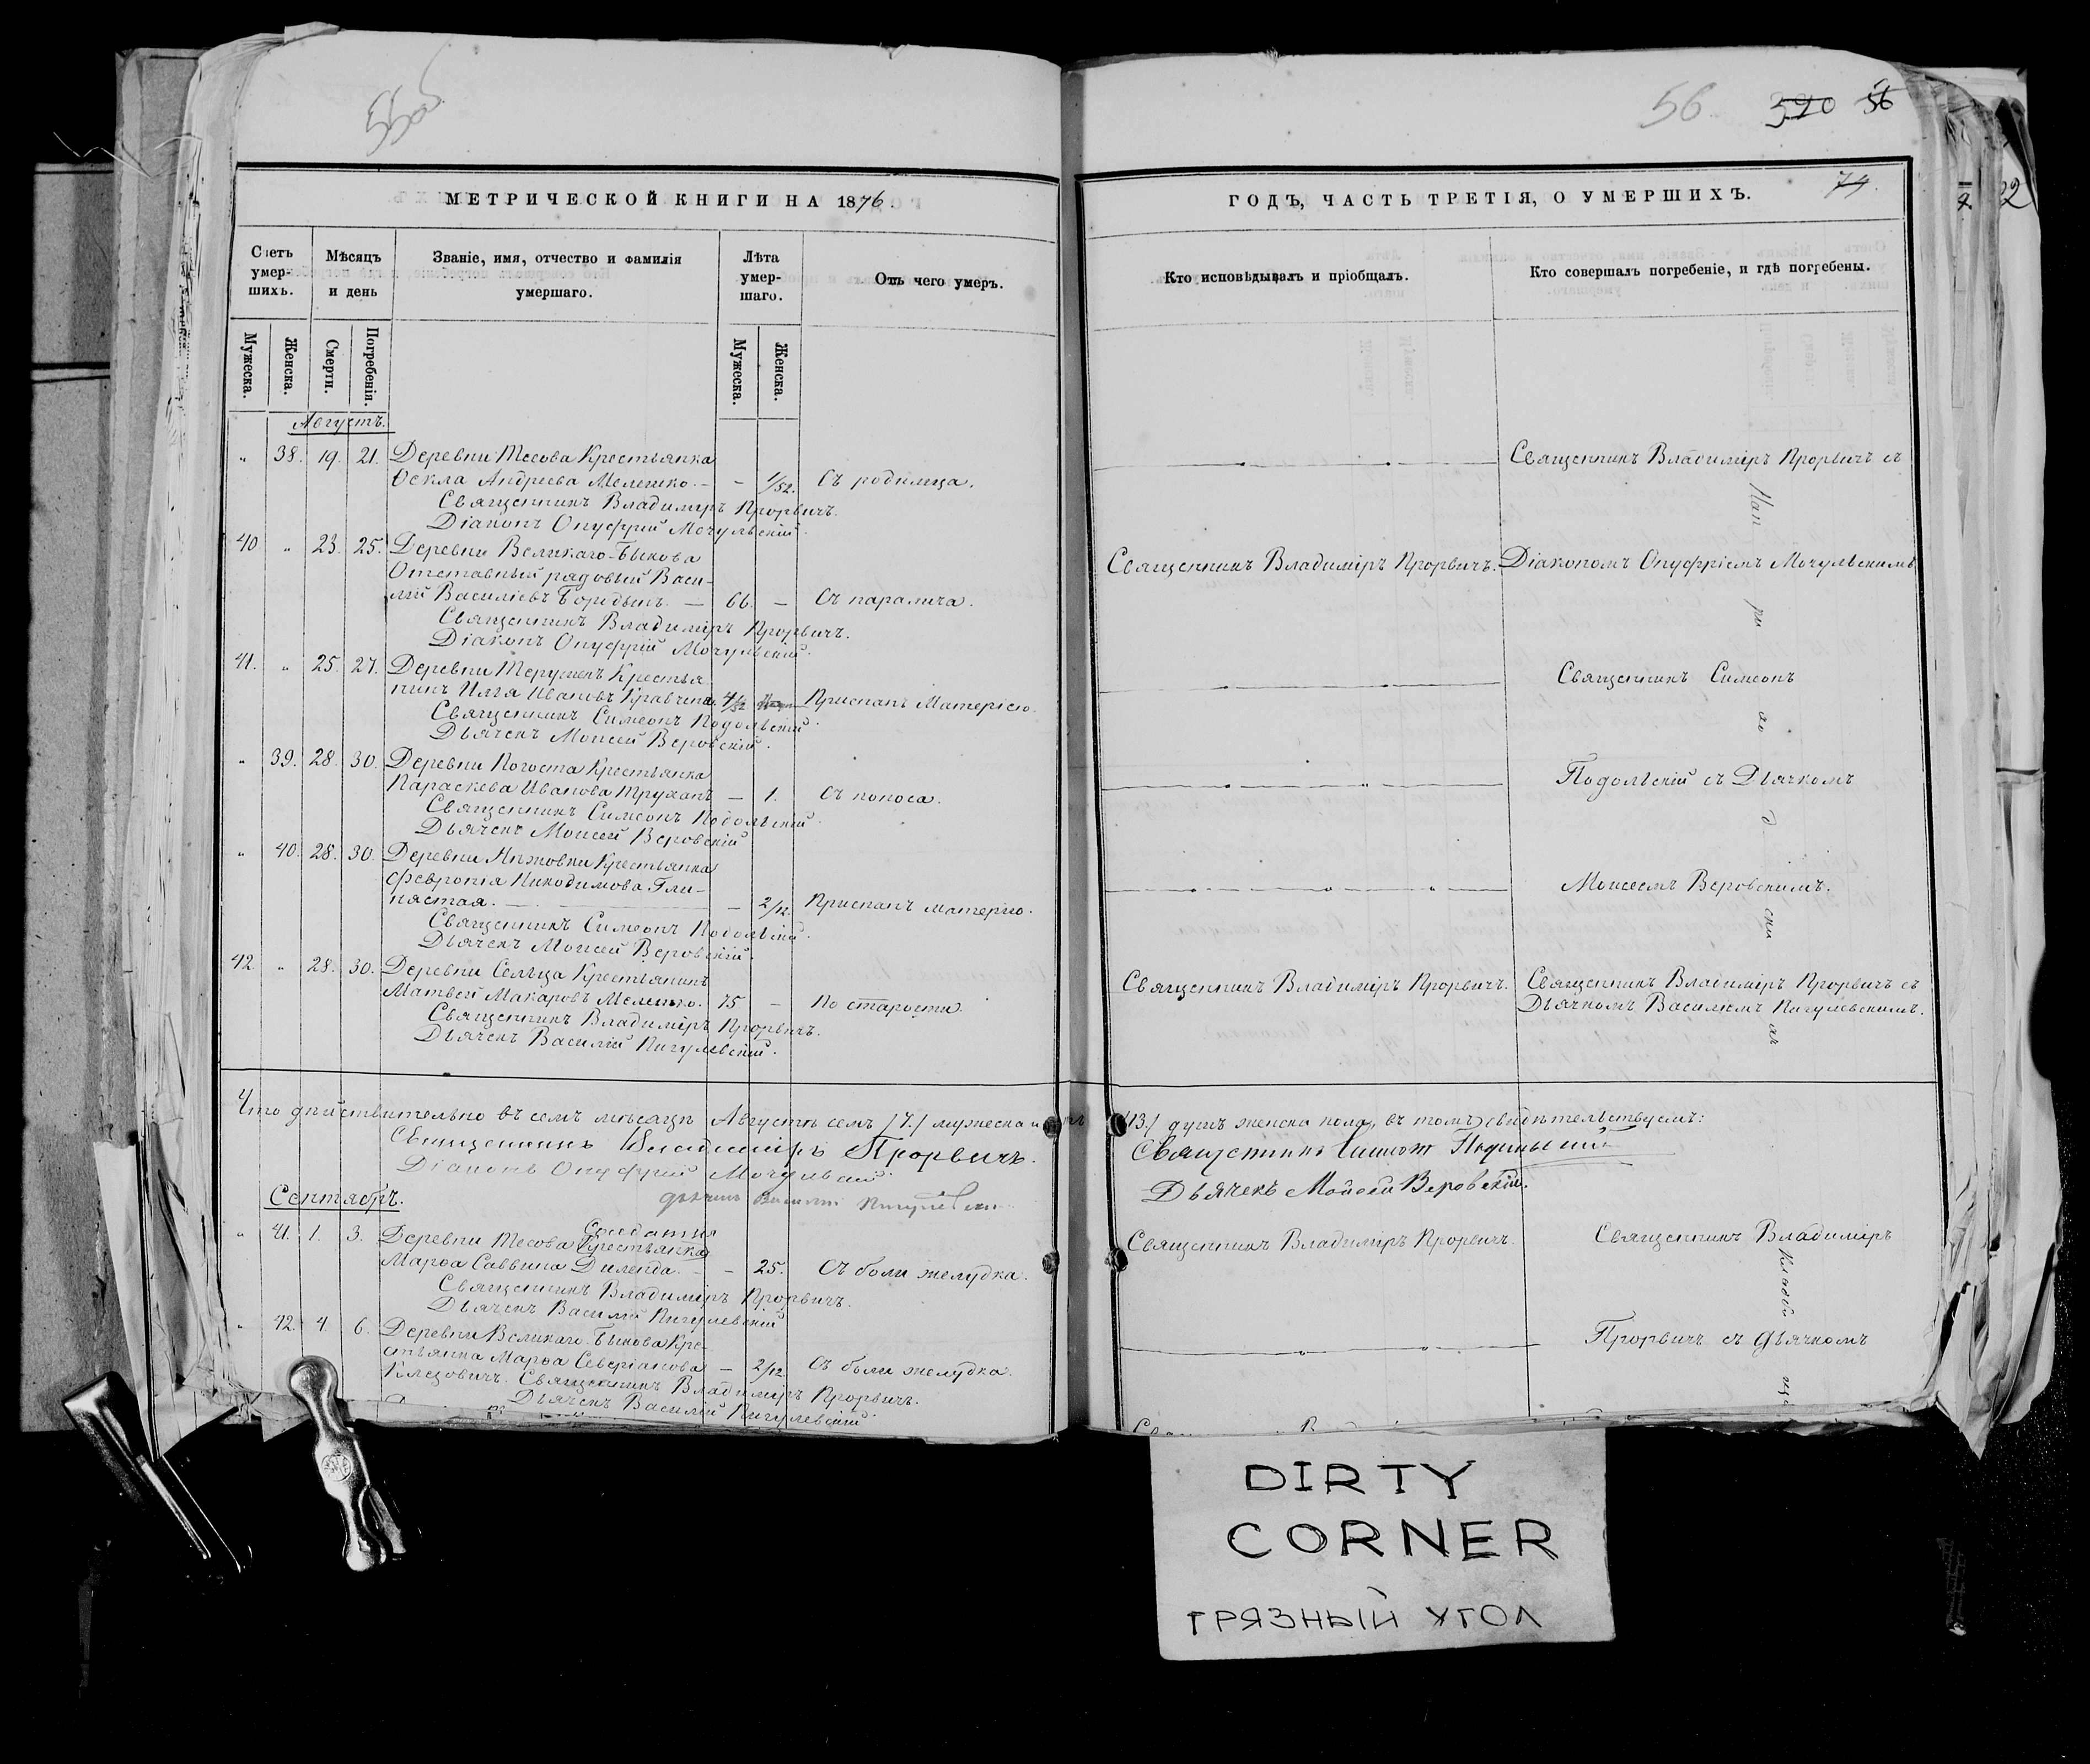 55об
МЕТРИЧЕСКОЙ КНИГИ НА 1876.
Счетъ умер-шихъ.
Мѣсяцъ и день
Званіе, имя, отчество и фамилія умершаго.
Лѣта умер-шаго.
Отъ чего умеръ.
Мужеска.
Женска.
Смерти.
Погребенія.
Мужеска.
Женска.
Августъ.
" 38. 19. 21. Деревни Тесова Крестьянка
Ѳекла Андреева Мелешко. - - 1/52. Съ родимца.
Священникъ Владиміръ Прорвичъ.
Діаконъ Онуфрій Мочульскій.
40 " 23. 25. Деревни Великаго-Быкова
Отставный рядовый Васи-
лій Васильевъ — 66. — Съ паралича.
Священникъ Владиміръ Прорвичъ.
Діаконъ Онуфрій Мочульскій.
41. " 25. 27. Деревни Крестья
нинъ Илья Ивановъ Кравченя 4/52 Приспанъ Матерію.
Священникъ Симеонъ Подольскій.
Дьячекъ Моисей Веровскій.
" 39. 28. 30. Деревни Погоста Крестьянка
Параскева Иванова Труханъ — 1. Съ поноса.
Священникъ Симеонъ Подольскій.
Дьячекъ Моисей Веровскій
" 40. 28. 30. Деревни Крестьянка
Февронія Никодимова Гли-
нястая. — — 2/12. Приспанъ матерію.
Священникъ Симеонъ Подольскій.
Дьячекъ Моисей Веровскій.
42. " 28. 30. Деревни Сельца Крестьянинъ
Матвей Макаровъ Мелешко. 75 — По старости.
Священникъ Владиміръ Прорвичъ.
Дьячекъ Василій Пигулевскій.
Что дѣйствительно въ семъ мѣсяцѣ Августѣ семъ /7./ мужеска и
Священникъ Владиміръ Прорвичъ.
Діаконъ Онуфрій Мочульскій
дьячекъ Василій Пигулевскій
Сентябрь.
Солдатка
" 41. 1. 3. Деревни Тесова Крестьянка
Марѳа Саввина Диленда. - - 25. Съ боли желудка.
Священникъ Владиміръ Прорвичъ.
Дьячекъ Василій Пигулевскій
" 42. 4. 6. Деревни Великаго-Быкова Кре-
стьянка Марѳа Северіанова — 2/12 Съ боли желудка.
Священникъ Владиміръ Прорвичъ.
Дьячекъ Василій Пигулевскій
56. 390 56
ГОДЪ, ЧАСТЬ ТРЕТІЯ, О УМЕРШИХЪ.
74.
Кто исповѣдывалъ и пріобщалъ.
Кто совершалъ погребеніе, и гдѣ погребены.
Священникъ Владиміръ Прорвичъ съ
Священникъ Владиміръ Прорвичъ. Діакономъ Онуфріемъ Мочульскимъ
Священникъ Симеонъ
Подольскій съ Дьячкомъ
Моисеемъ Веровскимъ.
Священникъ Владиміръ Прорвичъ. Священникъ Владиміръ Прорвичъ съ
Дьячкомъ Василіемъ Пигулевскимъ.
На при хо д ски хъ
/13/ душъ женска пола, въ томъ свидѣтельствуемъ:
Священникъ Симеонъ Подольскій
Дьячекъ Моисей Веровскій.
Священникъ Владиміръ Прорвичъ. Священникъ Владиміръ
Прорвичъ съ Дьячкомъ
кладби ще
DIRTY
CORNER
ГРЯЗНЫЙ УГОЛ